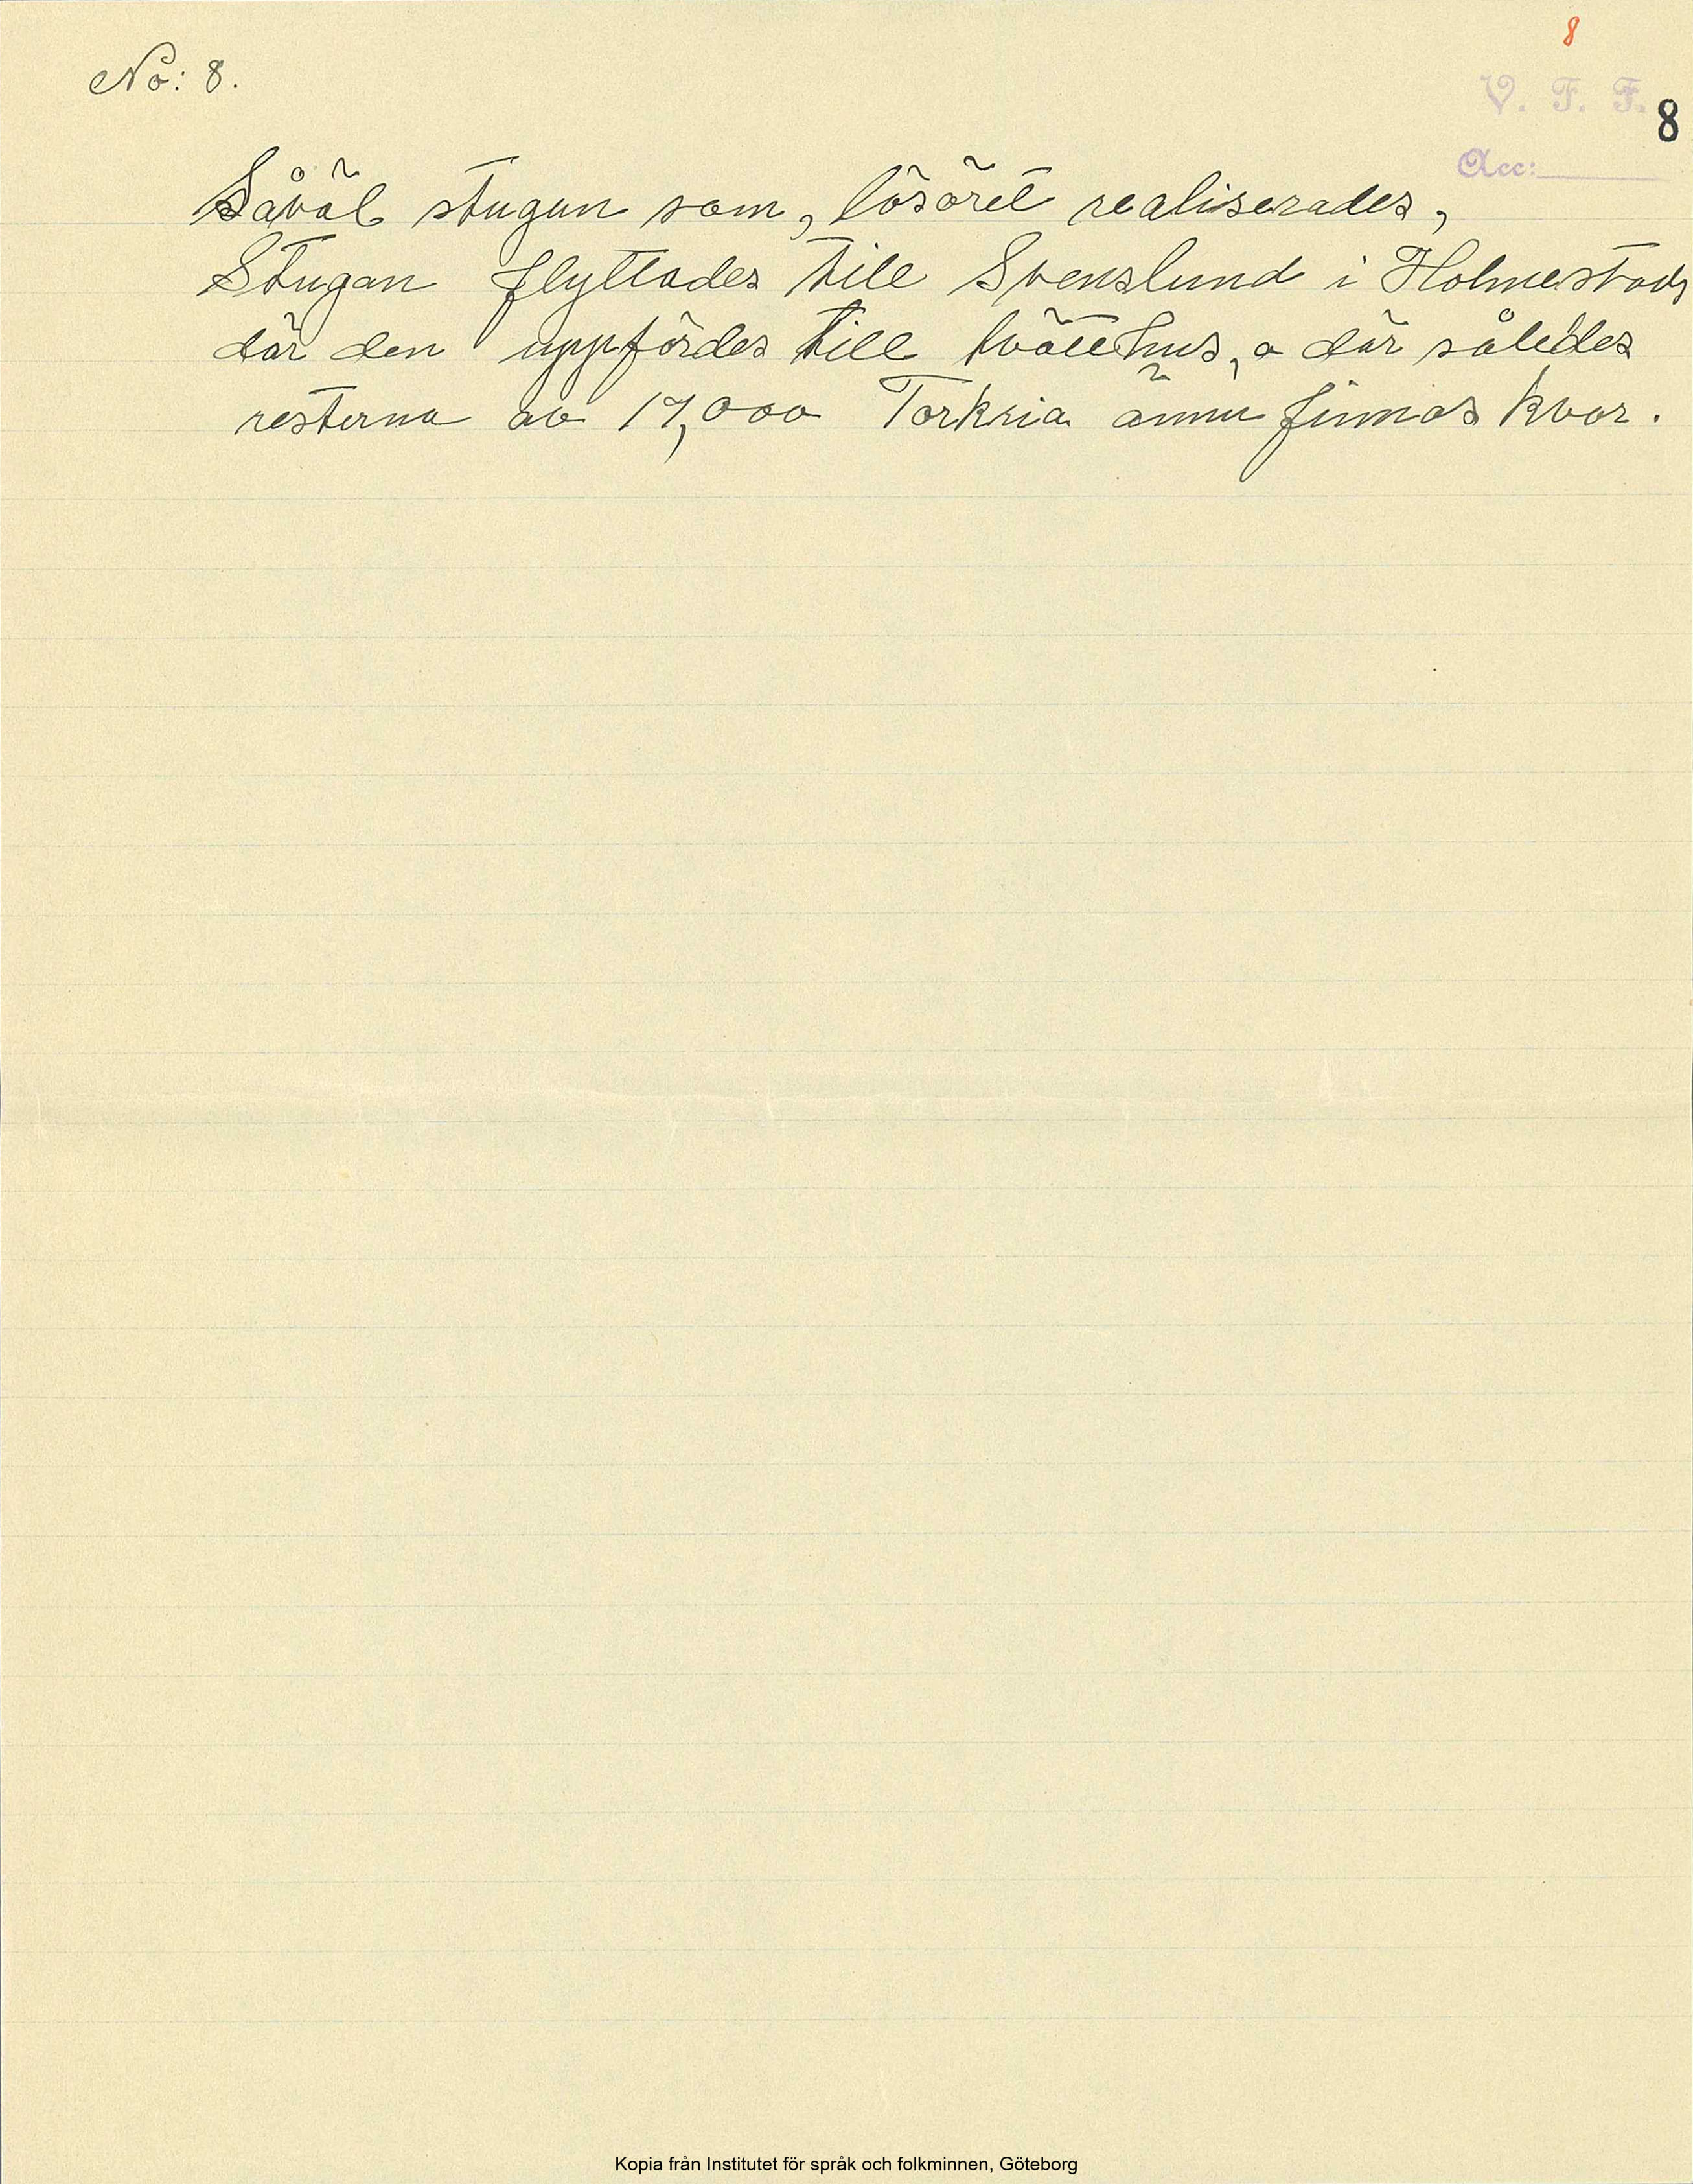 8
No: 8.
V. F. F.
8
Acc:
Såväl stugan som, lösöret realiserades,
Stugan flyttades till Svenslund i Holmestads
där den uppfördes till tvätthus, o där således
resterna av 17,000 Torkria ännu finnas kvar.
Kopia från Institutet för språk och folkminnen, Göteborg